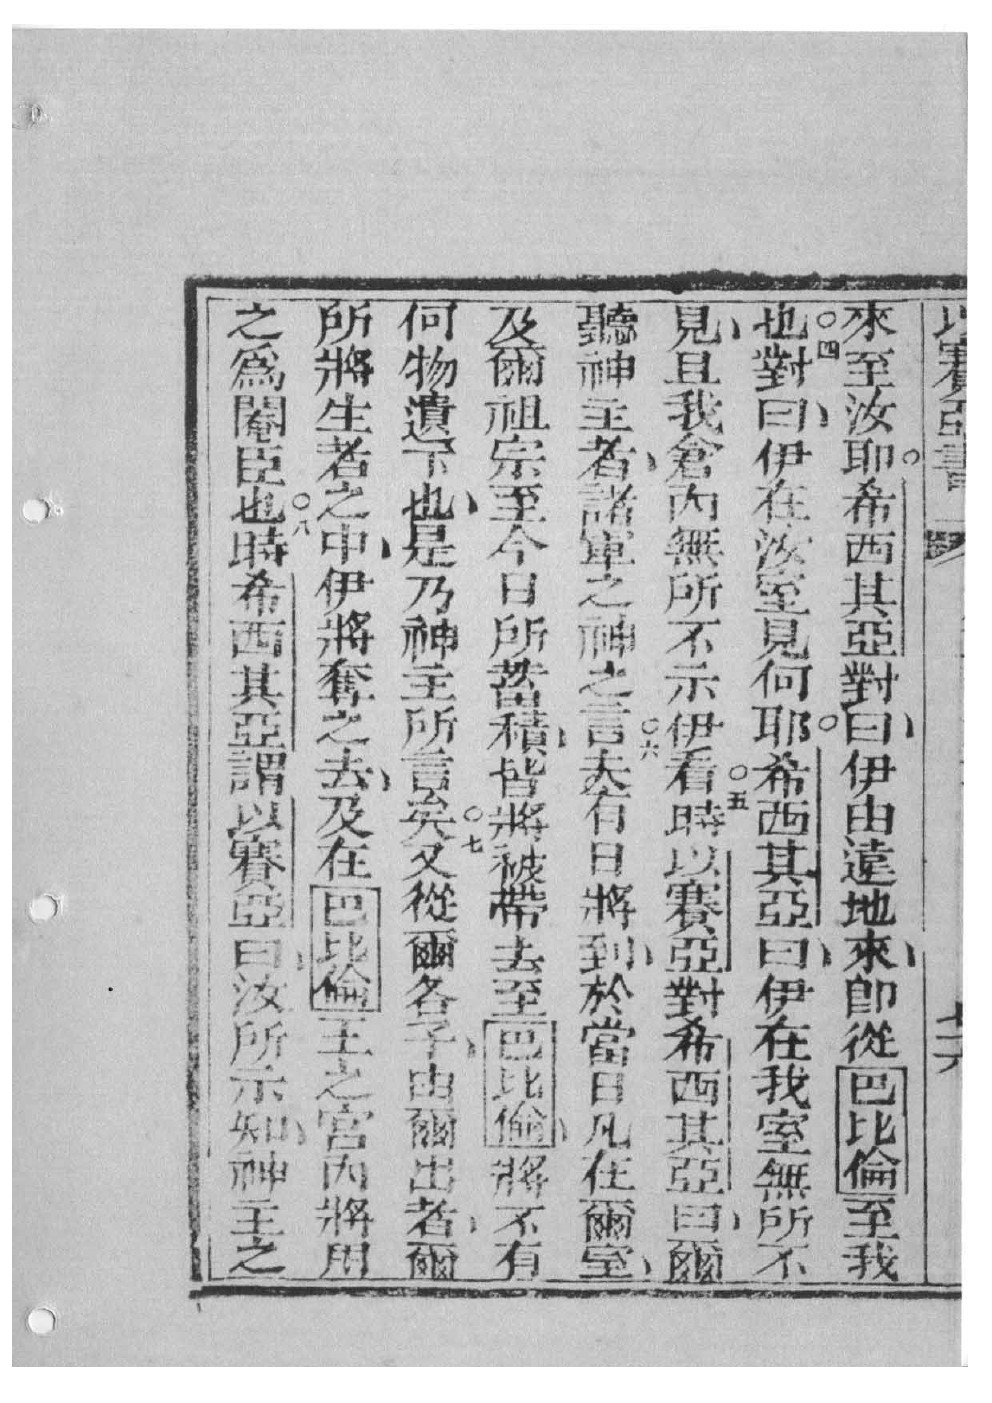 以賽亞書 七十六
來至汝耶。希西其亞對曰、伊由遠地來、卽從巴比倫至我
也。○四對曰、伊在汝室見何耶。希西其亞曰、伊在我室無所不
見、且我倉內無所不示伊看。○五時以賽亞對希西其亞曰、爾
聽神主者、諸軍之神之言。○六夫有日將到、於當日凡在爾室、
及爾祖宗至今日所蓄積、皆將被帶去至巴比倫、將不有
何物遺下也、是乃神主所言矣。○七又從爾各子、由爾出者、爾
所將生者之中、伊將奪之去、及在巴比倫王之宮內將用
之爲閹臣也。○八時希西其亞謂以賽亞曰、汝所示知、神主之